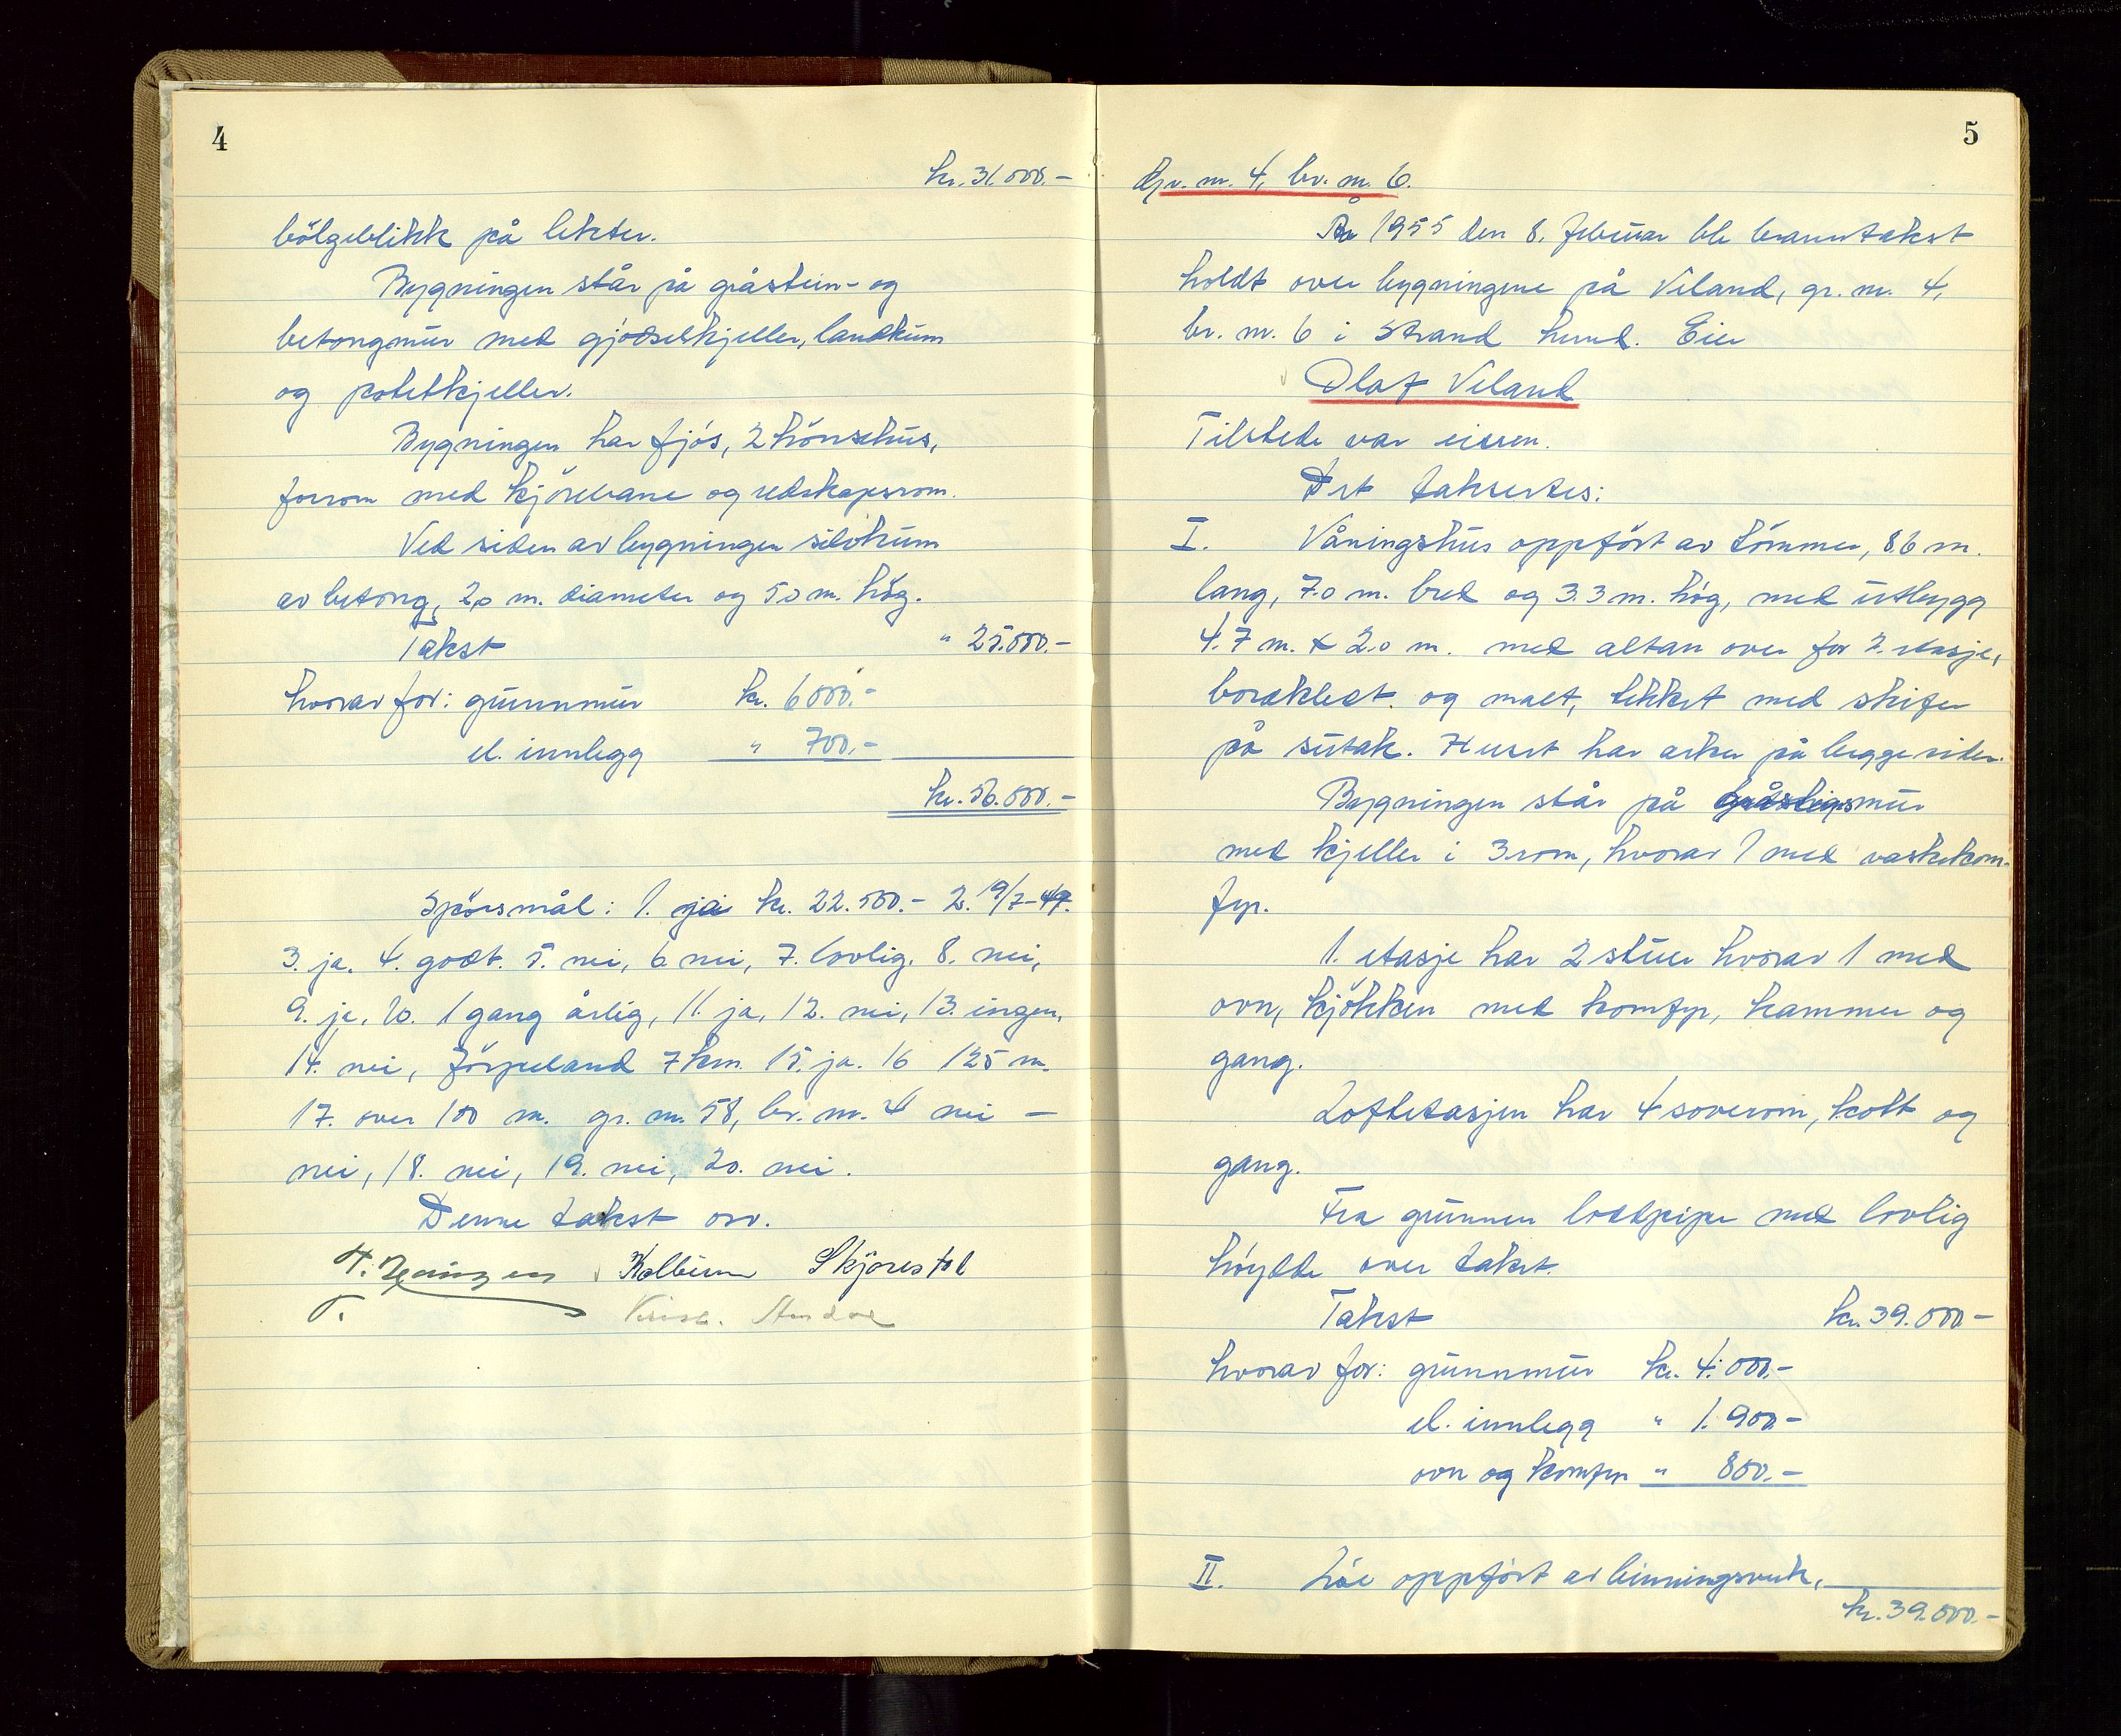 4
kr. 31.000.-
bölgeblikk på lekter.
Bygningen står på gråstein- og
betongmur med gjödselkjeller, landkum
og potetkjeller.
Bygningen har fjös, 2 hönsehus,
forrom med kjörebane og redskapsrom.
Ved siden av bygningen silokum
av betong, 2,0 m. diameter og 5,0 m. hög.
Takst " 25.000.-
hvorav for: grunnmur kr. 6000.-
el. innlegg " 700.-
kr. 56.000.-
Spörsmål: 1. ja kr. 22.500.- 2. 19/7-49.
3. ja. 4. godt. 5. nei, 6 nei, 7. lovlig. 8. nei,
9. ja. 10. 1 gang årlig, 11. ja, 12. nei, 13. ingen,
14. nei, Jörpeland 7 km. 15. ja. 16 125 m.
17. over 100 m. gr. nr. 58, br. nr. 4 nei -
nei, 18. nei, 19. nei, 20. nei.
Denne takst osv.
Kolbein Skjörestad
T. Krist.
5
Gr. nr. 4, br. nr. 6.
År 1955 den 8. februar ble branntakst
holdt over bygningene på Veland, gr. nr. 4,
br. nr. 6 i Strand herred. Eier
Olaf Veland
Tilstede var eieren.
Det taksertes:
I. Våningshus oppfört av tömmer, 8.6 m.
lang, 7.0 m. bred og 3.3 m. hög, med utbygg
4.7 m. x 2.0 m. med altan over for 2. etasje,
bordkledt og malt, tekket med skifer
på sutak. Huset har arker på begge sider.
Bygningen står på gråsteinsmur
med kjeller i 3 rom, hvorav 1 med vaskekom-
fyr.
1. etasje har 2 stuer hvorav 1 med
ovn, kjökken med komfyr, kammer og
gang.
Loftetasjen har 4 soverom, kott og
gang.
Fra grunnen loddpipe med lovlig
höyde over taket.
Takst kr. 39.000.-
hvorav for: grunnmur kr. 4.000.-
el. innlegg " 1.900.-
ovn og komfyr " 800.-
II. Löe oppfört av binningsverk,
kr. 39.000.-